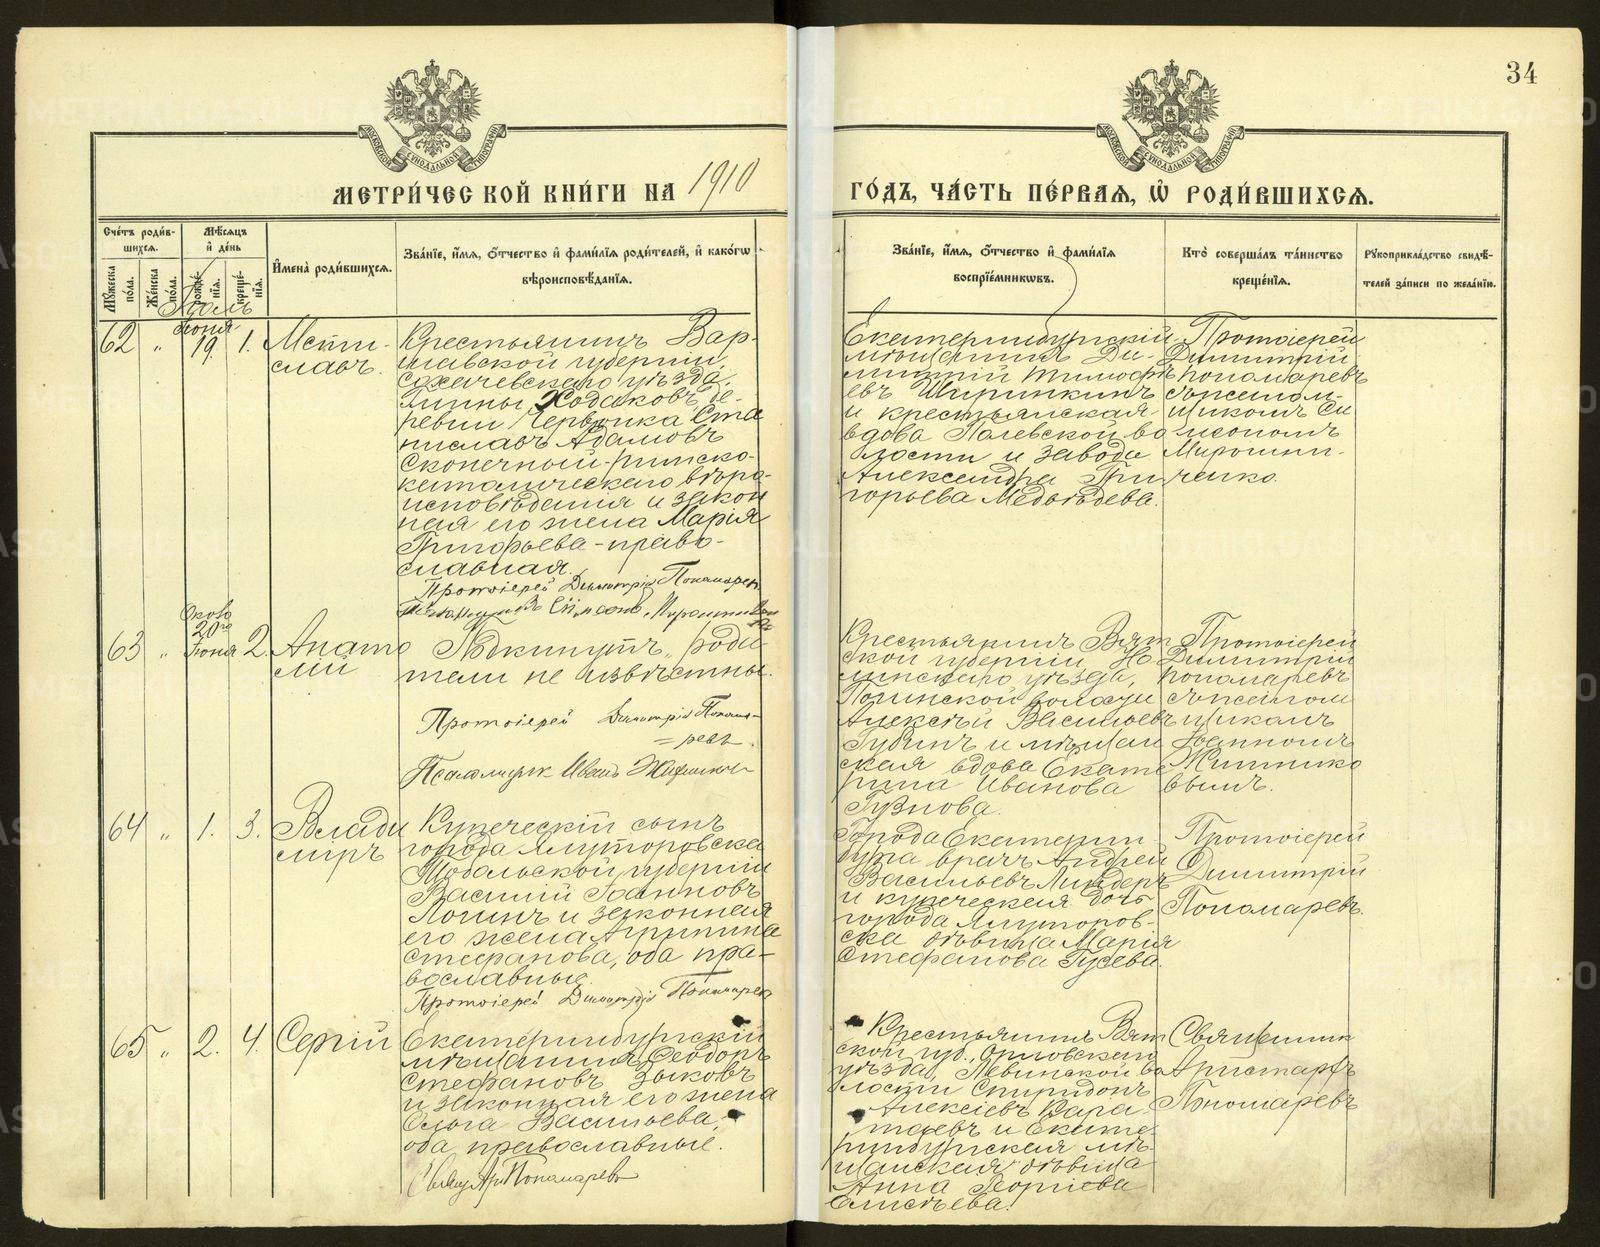 34
МЕТРИ́ЧЕСКОЙ КНИ́ГИ НА 1910
ГО́ДЪ, ЧА́СТЬ ПЕ́РВАЯ, Ѿ РОДИ́ВШИХСЯ.
Сче́тъ роди́в-
шихся.
Му́жеска по́ла.
Же́нска по́ла.
Мѣ́сяцъ
и де́нь
рожде́нія.
креще́нія.
Имена̀ роди́вшихся.
Зва́ніе, и́мя, о́тчество и фами́лія роди́телей, и како́гѡ
вѣроисповѣ́данія.
Зва́ніе, и́мя, о́тчество и фами́лія
воспріе́мникѡвъ.
Кто̀ соверша́лъ та́инство
креще́нія.
Рꙋкоприкла́дство свидѣ́-
телей за́писи по жела́нію.
Іюль
62 " Іюня 19. 1.
Мсти-
славъ.
Крестьянинъ Вар-
шавской губерніи,
Сохачевскаго уѣзда,
Гмины Ходаковъ де-
ревни Червонка Ста
ниславъ Адамовъ
Скопечный-римско-
католическаго вѣро-
исповѣданія и закон
ная его жена Марія
Григорьева-право-
славная.
Протоіерей Димитрій Пономарев
Екатеринбургскій
мѣщанинъ Ди-
митрій Тимофѣ
евъ Ширинкинъ
и крестьянская
вдова Полевской во
лости и завода
Александра Гри
горьева Медвѣдева.
Протоіерей
Димитрій
Пономаревъ
съ псалом-
щикомъ Си
меономъ
Мирошни-
ченко.
63 " Около 20го Іюня 2.
Анато
лій
Подкинутъ, роди
тели не извѣстны.
Протоіерей Димитрій Понома-
=ревъ.
Псаломщик Иванъ Житников
Крестьянинъ Вят
ской губерніи, Но
линскаго уѣзда,
волости
Алексѣй Васильевъ
Губинъ и мѣщан
ская вдова Екате
рина Иванова
Гузнова.
Протоіерей
Димитрій
Пономаревъ
съ псалом
щикомъ
Іоанномъ
Житнико
вымъ.
64 " 1. 3.
Влади
міръ
Купеческій сынъ
города Ялуторовска
Тобольской губерніи
Василій Іоанновъ
Логинъ и законная
его жена Агрипина
Стефанова, оба пра-
вославные.
Протоіерей Димитрій Пономарев
Города Екатерин-
бурга врачъ Андрей
Васильевъ Линдеръ
и купеческая дочь
города Ялуторов-
ска дѣвица Марія
Стефанова Гусева.
Протоіерей
Димитрій
Пономаревъ.
65 " 2. 4.
Сергій
Екатеринбургскій
мѣщанинъ Ѳеодоръ
Стефановъ Зыковъ
и законная его жена
Ольга Васильева,
оба православные.
Свящ Ар Пономаревъ
Крестьянинъ Вят
ской губ., Орловскаго
уѣзда, Левинской во
лости Спиридонъ
Алексѣевъ Кара-
таевъ и Екате
ринбургская мѣ-
щанская дѣвица
Анна Георгіева
Елисѣева.
Священник
Аристархъ
Пономаревъ